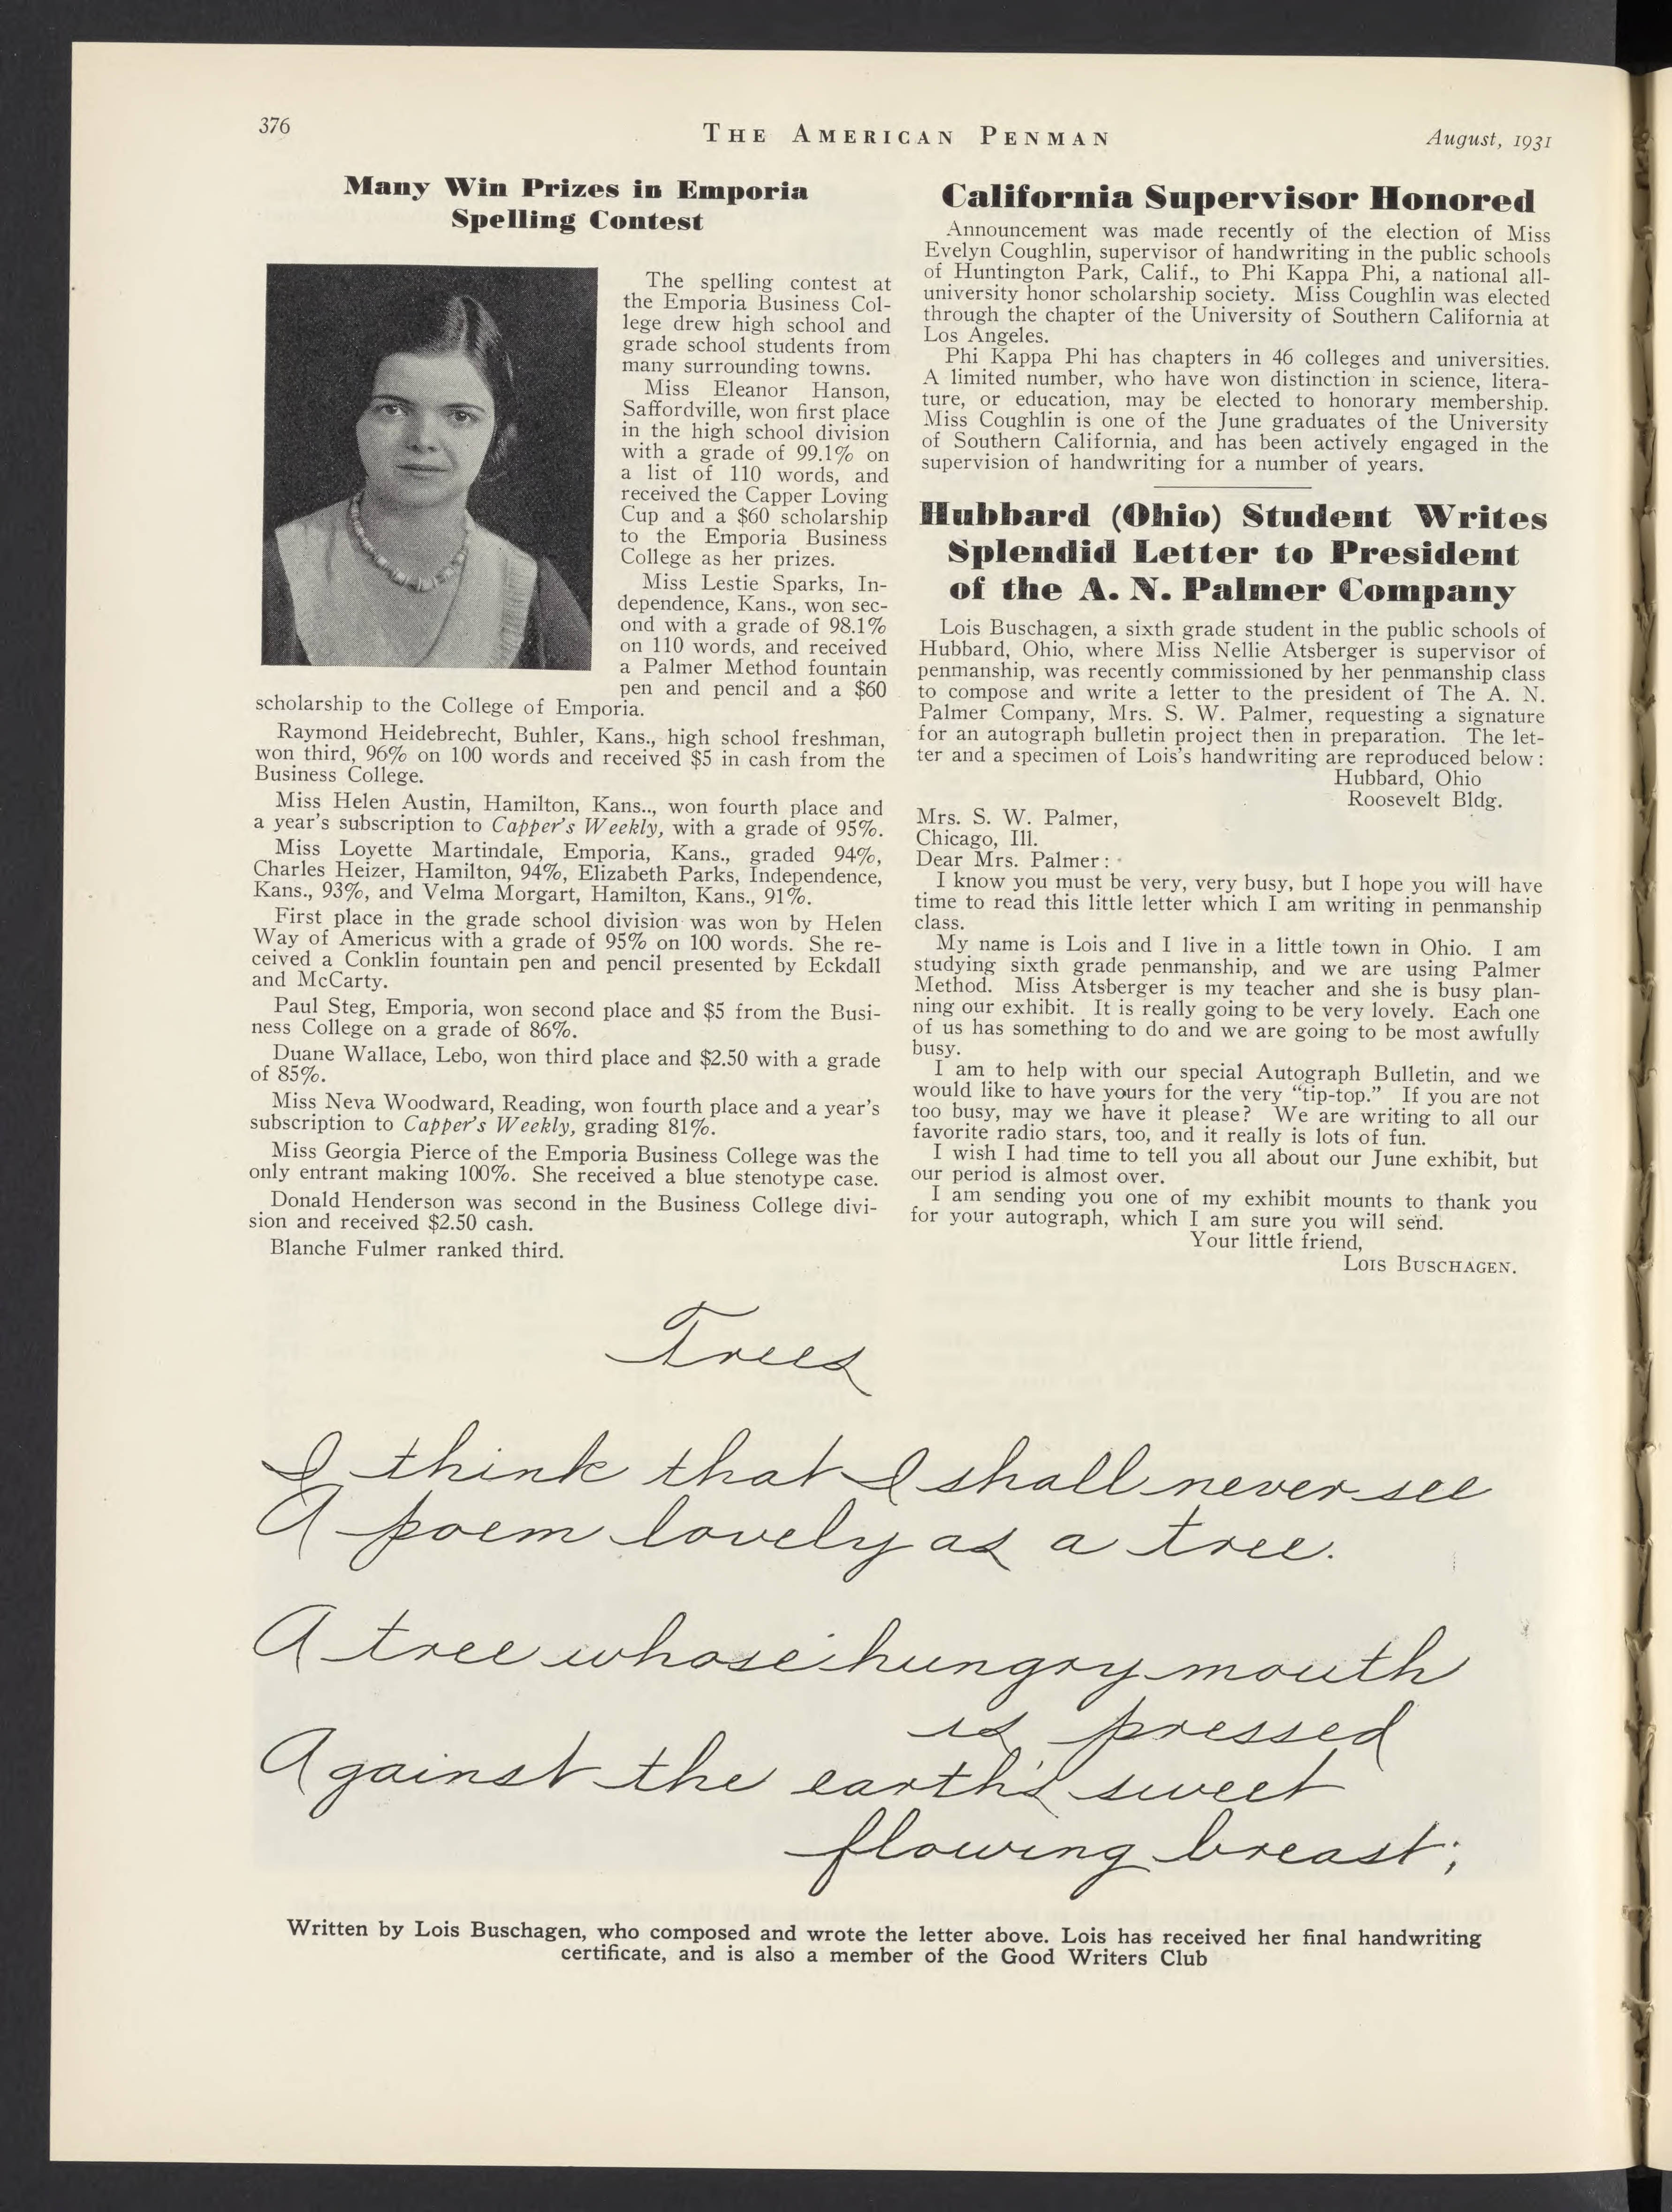 376
THE AMERICAN PENMAN
August, 1931
Many Win Prizes in Emporia
Spelling Contest
The spelling contest at
the Emporia Business Col-
lege drew high school and
grade school students from
many surrounding towns.
Miss Eleanor Hanson,
Saffordville, won first place
in the high school division
with a grade of 99.1% on
a list of 110 words, and
received the Capper Loving
Cup and a $60 scholarship
to the Emporia Business
College as her prizes.
Miss Lestie Sparks, In-
dependence, Kans., won sec-
ond with a grade of 98.1%
on 110 words, and received
a Palmer Method fountain
pen and pencil and a $60
scholarship to the College of Emporia.
Raymond Heidebrecht, Buhler, Kans., high school freshman,
won third, 96% on 100 words and received $5 in cash from the
Business College.
Miss Helen Austin, Hamilton, Kans.., won fourth place and
a year's subscription to Capper's Weekly, with a grade of 95%.
Miss Loyette Martindale, Emporia, Kans., graded 94%,
Charles Heizer, Hamilton, 94%, Elizabeth Parks, Independence,
Kans., 93%, and Velma Morgart, Hamilton, Kans., 91%.
First place in the grade school division was won by Helen
Way of Americus with a grade of 95% on 100 words. She re-
ceived a Conklin fountain pen and pencil presented by Eckdall
and McCarty.
Paul Steg, Emporia, won second place and $5 from the Busi-
ness College on a grade of 86%.
Duane Wallace, Lebo, won third place and $2.50 with a grade
of 85%.
Miss Neva Woodward, Reading, won fourth place and a year's
subscription to Capper's Weekly, grading 81%.
Miss Georgia Pierce of the Emporia Business College was the
only entrant making 100%. She received a blue stenotype case.
Donald Henderson was second in the Business College divi-
sion and received $2.50 cash.
Blanche Fulmer ranked third.
California Supervisor Honored
Announcement was made recently of the election of Miss
Evelyn Coughlin, supervisor of handwriting in the public schools
of Huntington Park, Calif., to Phi Kappa Phi, a national all-
university honor scholarship society. Miss Coughlin was elected
through the chapter of the University of Southern California at
Los Angeles.
Phi Kappa Phi has chapters in 46 colleges and universities.
A limited number, who have won distinction in science, litera-
ture, or education, may be elected to honorary membership.
Miss Coughlin is one of the June graduates of the University
of Southern California, and has been actively engaged in the
supervision of handwriting for a number of years.
Hubbard (Ohio) Student Writes
Splendid Letter to President
of the A. N. Palmer Company
Lois Buschagen, a sixth grade student in the public schools of
Hubbard, Ohio, where Miss Nellie Atsberger is supervisor of
penmanship, was recently commissioned by her penmanship class
to compose and write a letter to the president of The A. N.
Palmer Company, Mrs. S. W. Palmer, requesting a signature
for an autograph bulletin project then in preparation. The let-
ter and a specimen of Lois's handwriting are reproduced below:
Hubbard, Ohio
Roosevelt Bldg.
Mrs. S. W. Palmer,
Chicago, Ill.
Dear Mrs. Palmer:
I know you must be very, very busy, but I hope you will have
time to read this little letter which I am writing in penmanship
class.
My name is Lois and I live in a little town in Ohio. I am
studying sixth grade penmanship, and we are using Palmer
Method. Miss Atsberger is my teacher and she is busy plan-
ning our exhibit. It is really going to be very lovely. Each one
of us has something to do and we are going to be most awfully
busy.
I am to help with our special Autograph Bulletin, and we
would like to have yours for the very "tip-top." If you are not
too busy, may we have it please? We are writing to all our
favorite radio stars, too, and it really is lots of fun.
I wish I had time to tell you all about our June exhibit, but
our period is almost over.
I am sending you one of my exhibit mounts to thank you
for your autograph, which I am sure you will send.
Your little friend,
LOIS BUSCHAGEN.
Trees
I think that I shall never see
A poem lovely as a tree.
A tree whose hungry mouth
is pressed
Against the earth's sweet
flowing breast;
Written by Lois Buschagen, who composed and wrote the letter above. Lois has received her final handwriting
certificate, and is also a member of the Good Writers Club